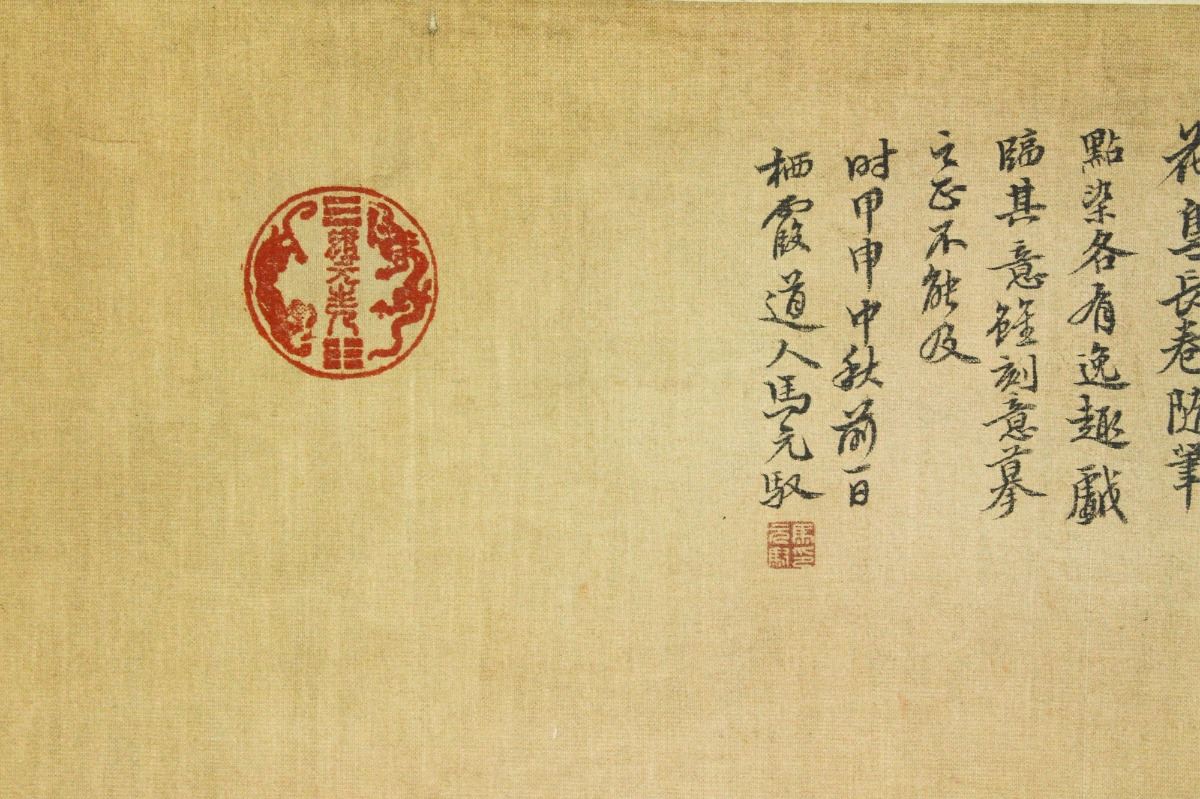 花鳥長卷随筆
點染各有逸趣戲
臨其意雖刻意摹
之正不能及
时甲申中秋前一日
栖霞道人馬元馭
馬元馭印